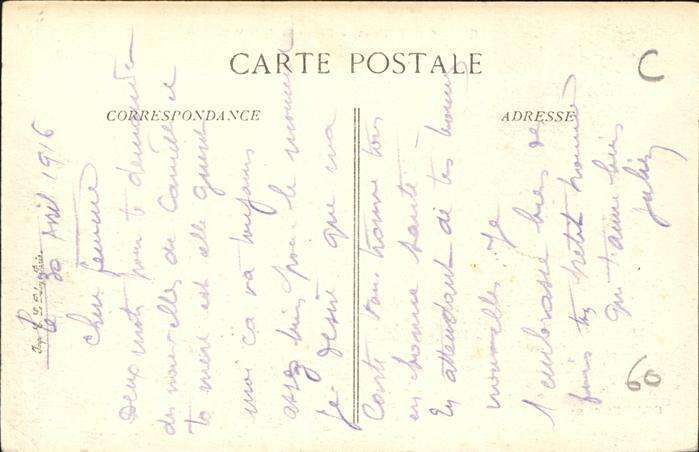 CARTE POSTALE
CORRESPONDANCE
ADRESSE
C
60
Le 30 Avril 1916
Cher femme
Deux mots pour te demander
des nouvelles de Camille et
ta mère est elle guerit
moi ça va toujours
assez bien pour le moment
je désire que ma
Carte vous trouve tous
en bonne santé
En attendant de tes bonnes
nouvelles Je
t'embrasse bien de
fois ton petit homme
qui t'aime bien
Julien